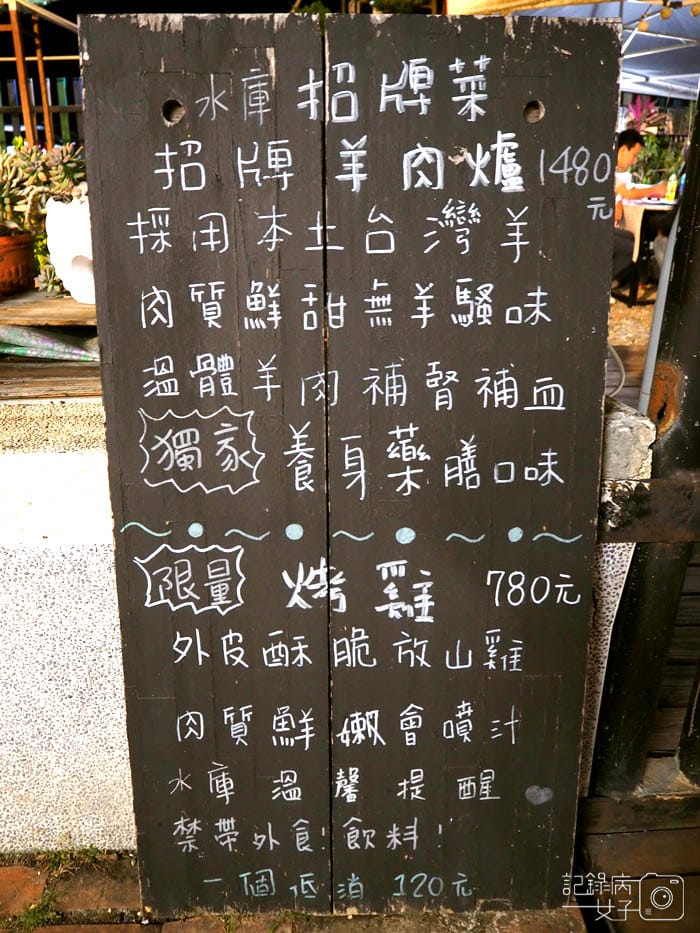 水庫招牌菜
招牌羊肉爐1480元
採用本土台灣羊
肉質鮮甜無羊騷味
溫體羊肉補腎補血
獨家養身藥膳口味
限量烤雞 780元
外皮酥脆放山雞
肉質鮮嫩會噴汁
水庫溫馨提醒
禁帶外食!飲料!
一個低消120元
記錄病女子